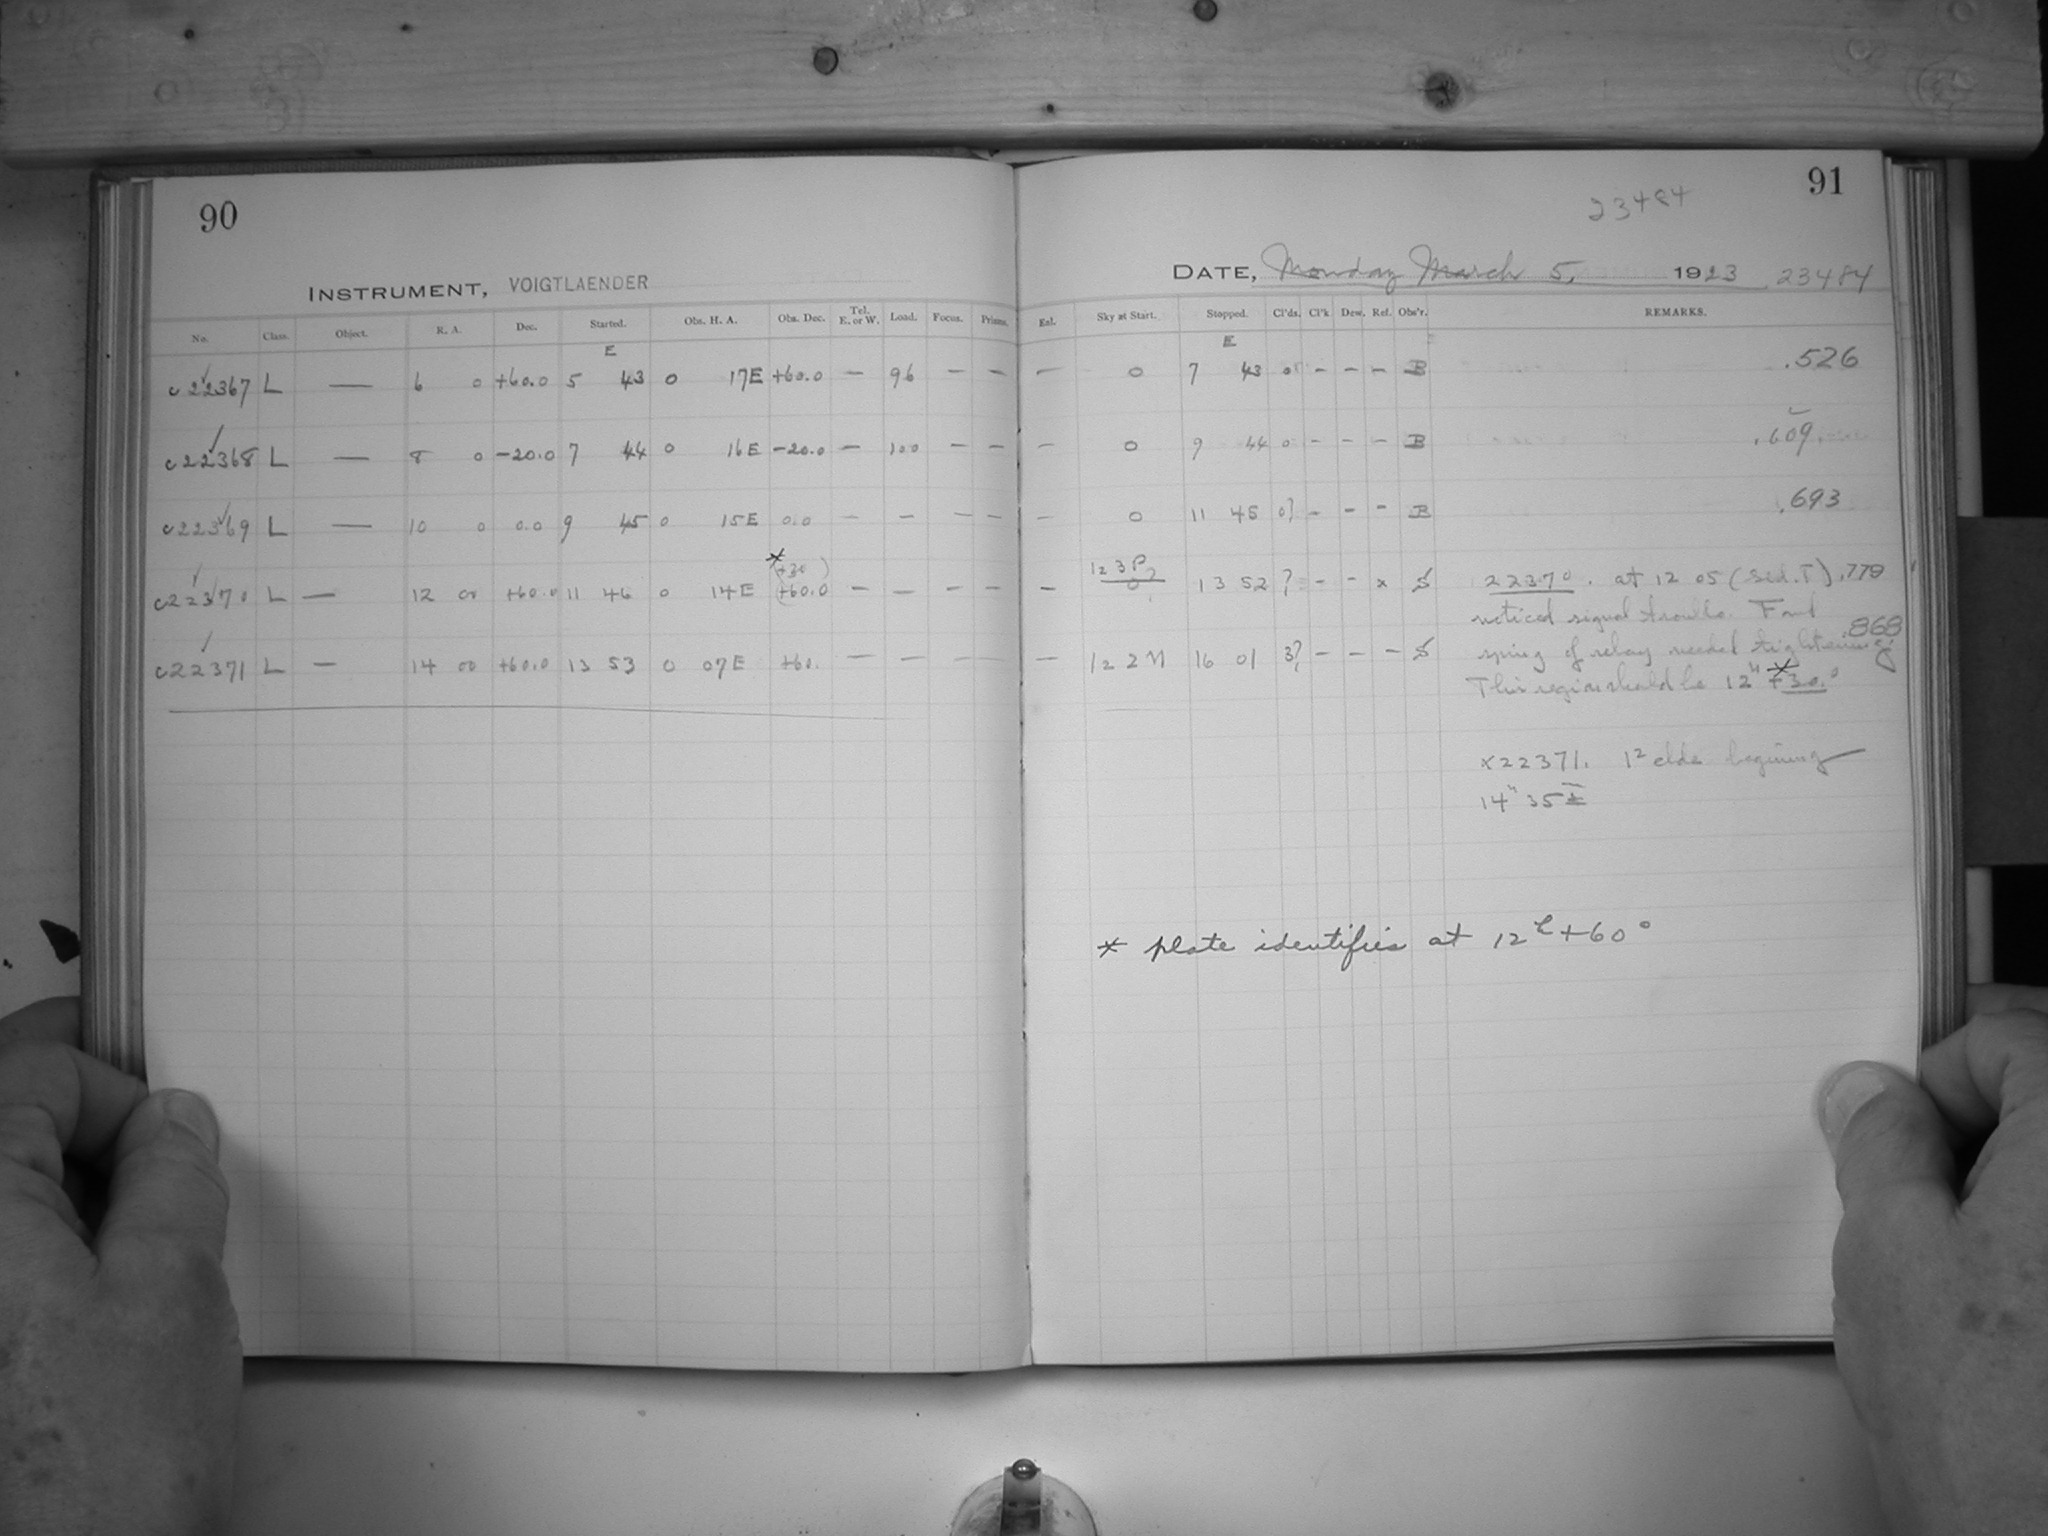 90
INSTRUMENT, VOIGTLAENDER
No. Class. Object. R. A. Dec. Started. Obs. H. A. Obs. Dec. Tel. E. or W. Load. Focus. Prisms.
E
c22367 L — 6 0 +60.0 5 43 0 17E +60.0 — 96 — —
c22368 L — 8 0 -20.0 7 44 0 16E -20.0 — 100 — —
c22369 L — 10 0 0.0 9 45 0 15E 0.0 — — — —
* (+30)
c22370 L — 12 00 +60.0 11 46 0 14E (+60.0 — — — —
c22371 L — 14 00 +60.0 13 53 0 07E +60. — — — —
91
23484
DATE, Monday March 5, 1923 23484
Exl. Sky at Start. Stopped. Cl'ds. Cl'k Dew. Ref. Obs'r. REMARKS.
E
— 0 7 43 0 - - - B .526
— 0 9 44 0 - - - B .609
— 0 11 45 0? - - - B .693
— 123P? 0 13 52 ? - - x S 22370. at 12 05 (Sid. T) .779
noticed signal trouble. Found
.868
— 122N 16 01 3? - - - S spring of relay needed tightening
This region should be 12h *+30.°
x22371. 12 clds begining
14h 35
* plate identifies at 12h +60°